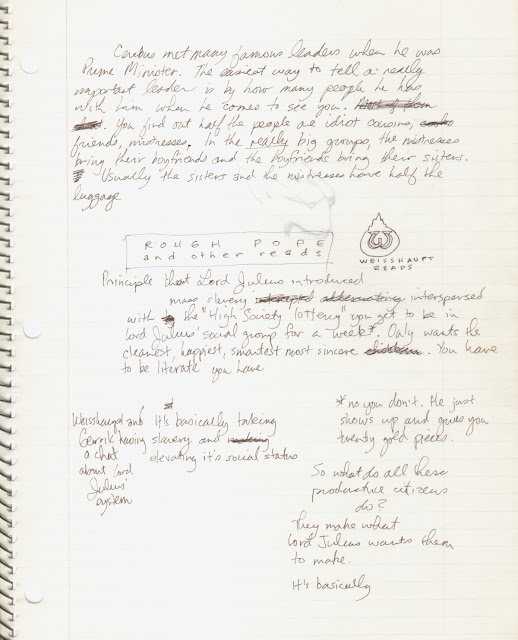 Cerebus met many famous leaders when he was
Prime Minister. The easiest way to tell a really
important leader is by how many people he has
with him when he comes to see you.
You find out half the people are idiot cousins,
friends, mistresses. In the really big groups, the mistresses
bring their boyfriends and the boyfriends bring their sisters.
Usually the sisters and the mistresses have half the
luggage
ROUGH POPE
and other reads
WEISSHAUPT
READS
Principle that Lord Julius introduced
mass slavery interspersed
with the "High Society" lottery" you get to be in
Lord Julius' social group for a week*. Only wants the
cleanest, happiest, smartest most sincere . You have
to be literate you have
Weisshaupt and
Gerrik having
a chat
about Lord
Julius'
system
*
It's basically taking
slavery and
elevating it's social status
*no you don't. He just
shows up and gives you
twenty gold pieces.
So what do all these
productive citizens
do?
They make what
Lord Julius wants them
to make.
It's basically